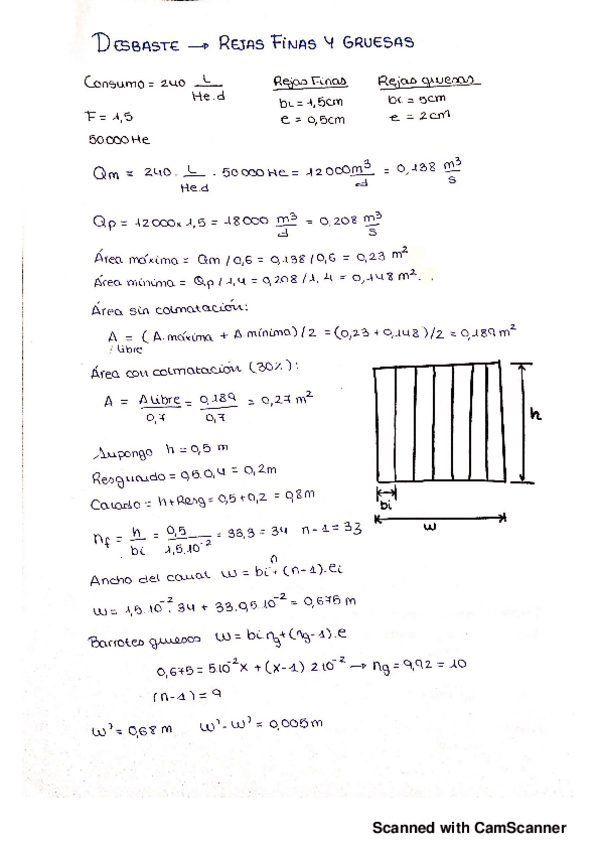 DESBASTE → REJAS FINAS Y GRUESAS
Consumo = 240 L/He.d
Rejas Finas
Rejas gruesas
F = 1,5
bi = 1,5cm
bi = 5cm
e = 0,5cm
e = 2cm
50000 He
Qm = 240 . L/He.d . 50000 He = 12000 m³/d = 0,138 m³/s
Qp = 12000 x 1,5 = 18000 m³/d = 0,208 m³/s
Área máxima = Qm / 0,6 = 0,138 / 0,6 = 0,23 m²
Área mínima = Qp / 1,4 = 0,208 / 1,4 = 0,148 m².
Área sin colmatación:
A libre = (A.máxima + A mínima) / 2 = (0,23 + 0,148) / 2 = 0,189 m²
Área con colmatación (30%):
A = A libre / 0,7 = 0,189 / 0,7 = 0,27 m²
Supongo h = 0,5 m
Resguardo = 0,5.0,4 = 0,2m
Calado = h + Resg = 0,5 + 0,2 = 0,8m
nf = h / bi = 0,5 / 1,5.10⁻² = 33,3 = 34 n-1 = 33
Ancho del canal w = bi.n + (n-1).ei
w = 1,5.10⁻².34 + 33.0,5.10⁻² = 0,675 m
Barrotes gruesos w = bi.ng + (ng-1).e
0,675 = 5.10⁻²x + (x-1) 2.10⁻² → ng = 9,92 = 10
(n-1) = 9
w' = 0,68 m w'-w' = 0,005m
h
bi
w
Scanned with CamScanner